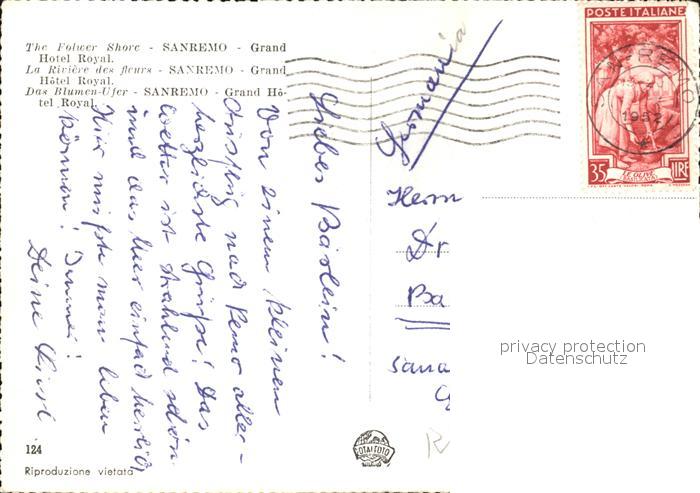 The Folwer Shore - SANREMO - Grand
Hotel Royal.
La Rivière des fleurs - SANREMO - Grand
Hôtel Royal.
Das Blumen-Ufer - SANREMO - Grand Hô-
tel Royal.
Liebes Bärlein!
Von einem kleinen
Ausflug nach Remo aller-
herzlichste Grüße! Das
Wetter ist strahlend schön
und das Meer einfach herrlich
Hier müßte man leben
können! Immer!
Deine
124
Riproduzione vietata
Germania
Herrn
Dr
Ba
Sana
POSTE ITALIANE
1952
35 LIRE
LE OLIVE
TOTALFOTO
R
privacy protection
Datenschutz